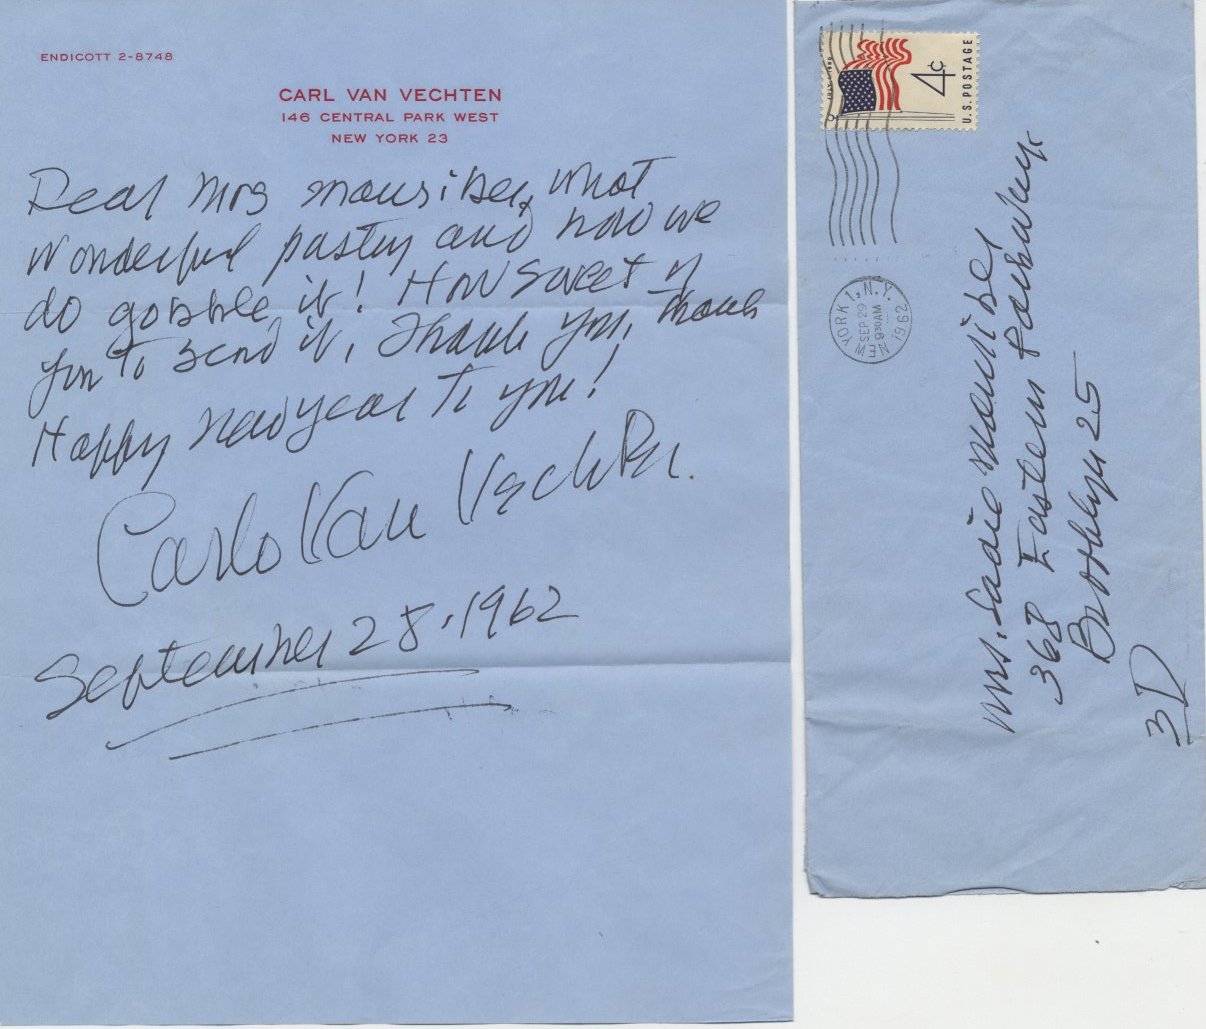 ENDICOTT 2-8748
CARL VAN VECHTEN
146 CENTRAL PARK WEST
NEW YORK 23
Dear Mrs what
wonderful pastry and how we
do gobble it! How sweet of
you to send it, Thank you, thank
Happy New year to you!
Carlo Van Vechten.
September 28.1962
4¢
U.S. POSTAGE
NEW YORK 1, N.Y.
SEP 29
9 30 AM
1962
Mrs. Sadie
368 Eastern Parkway,
Brooklyn 25
3D